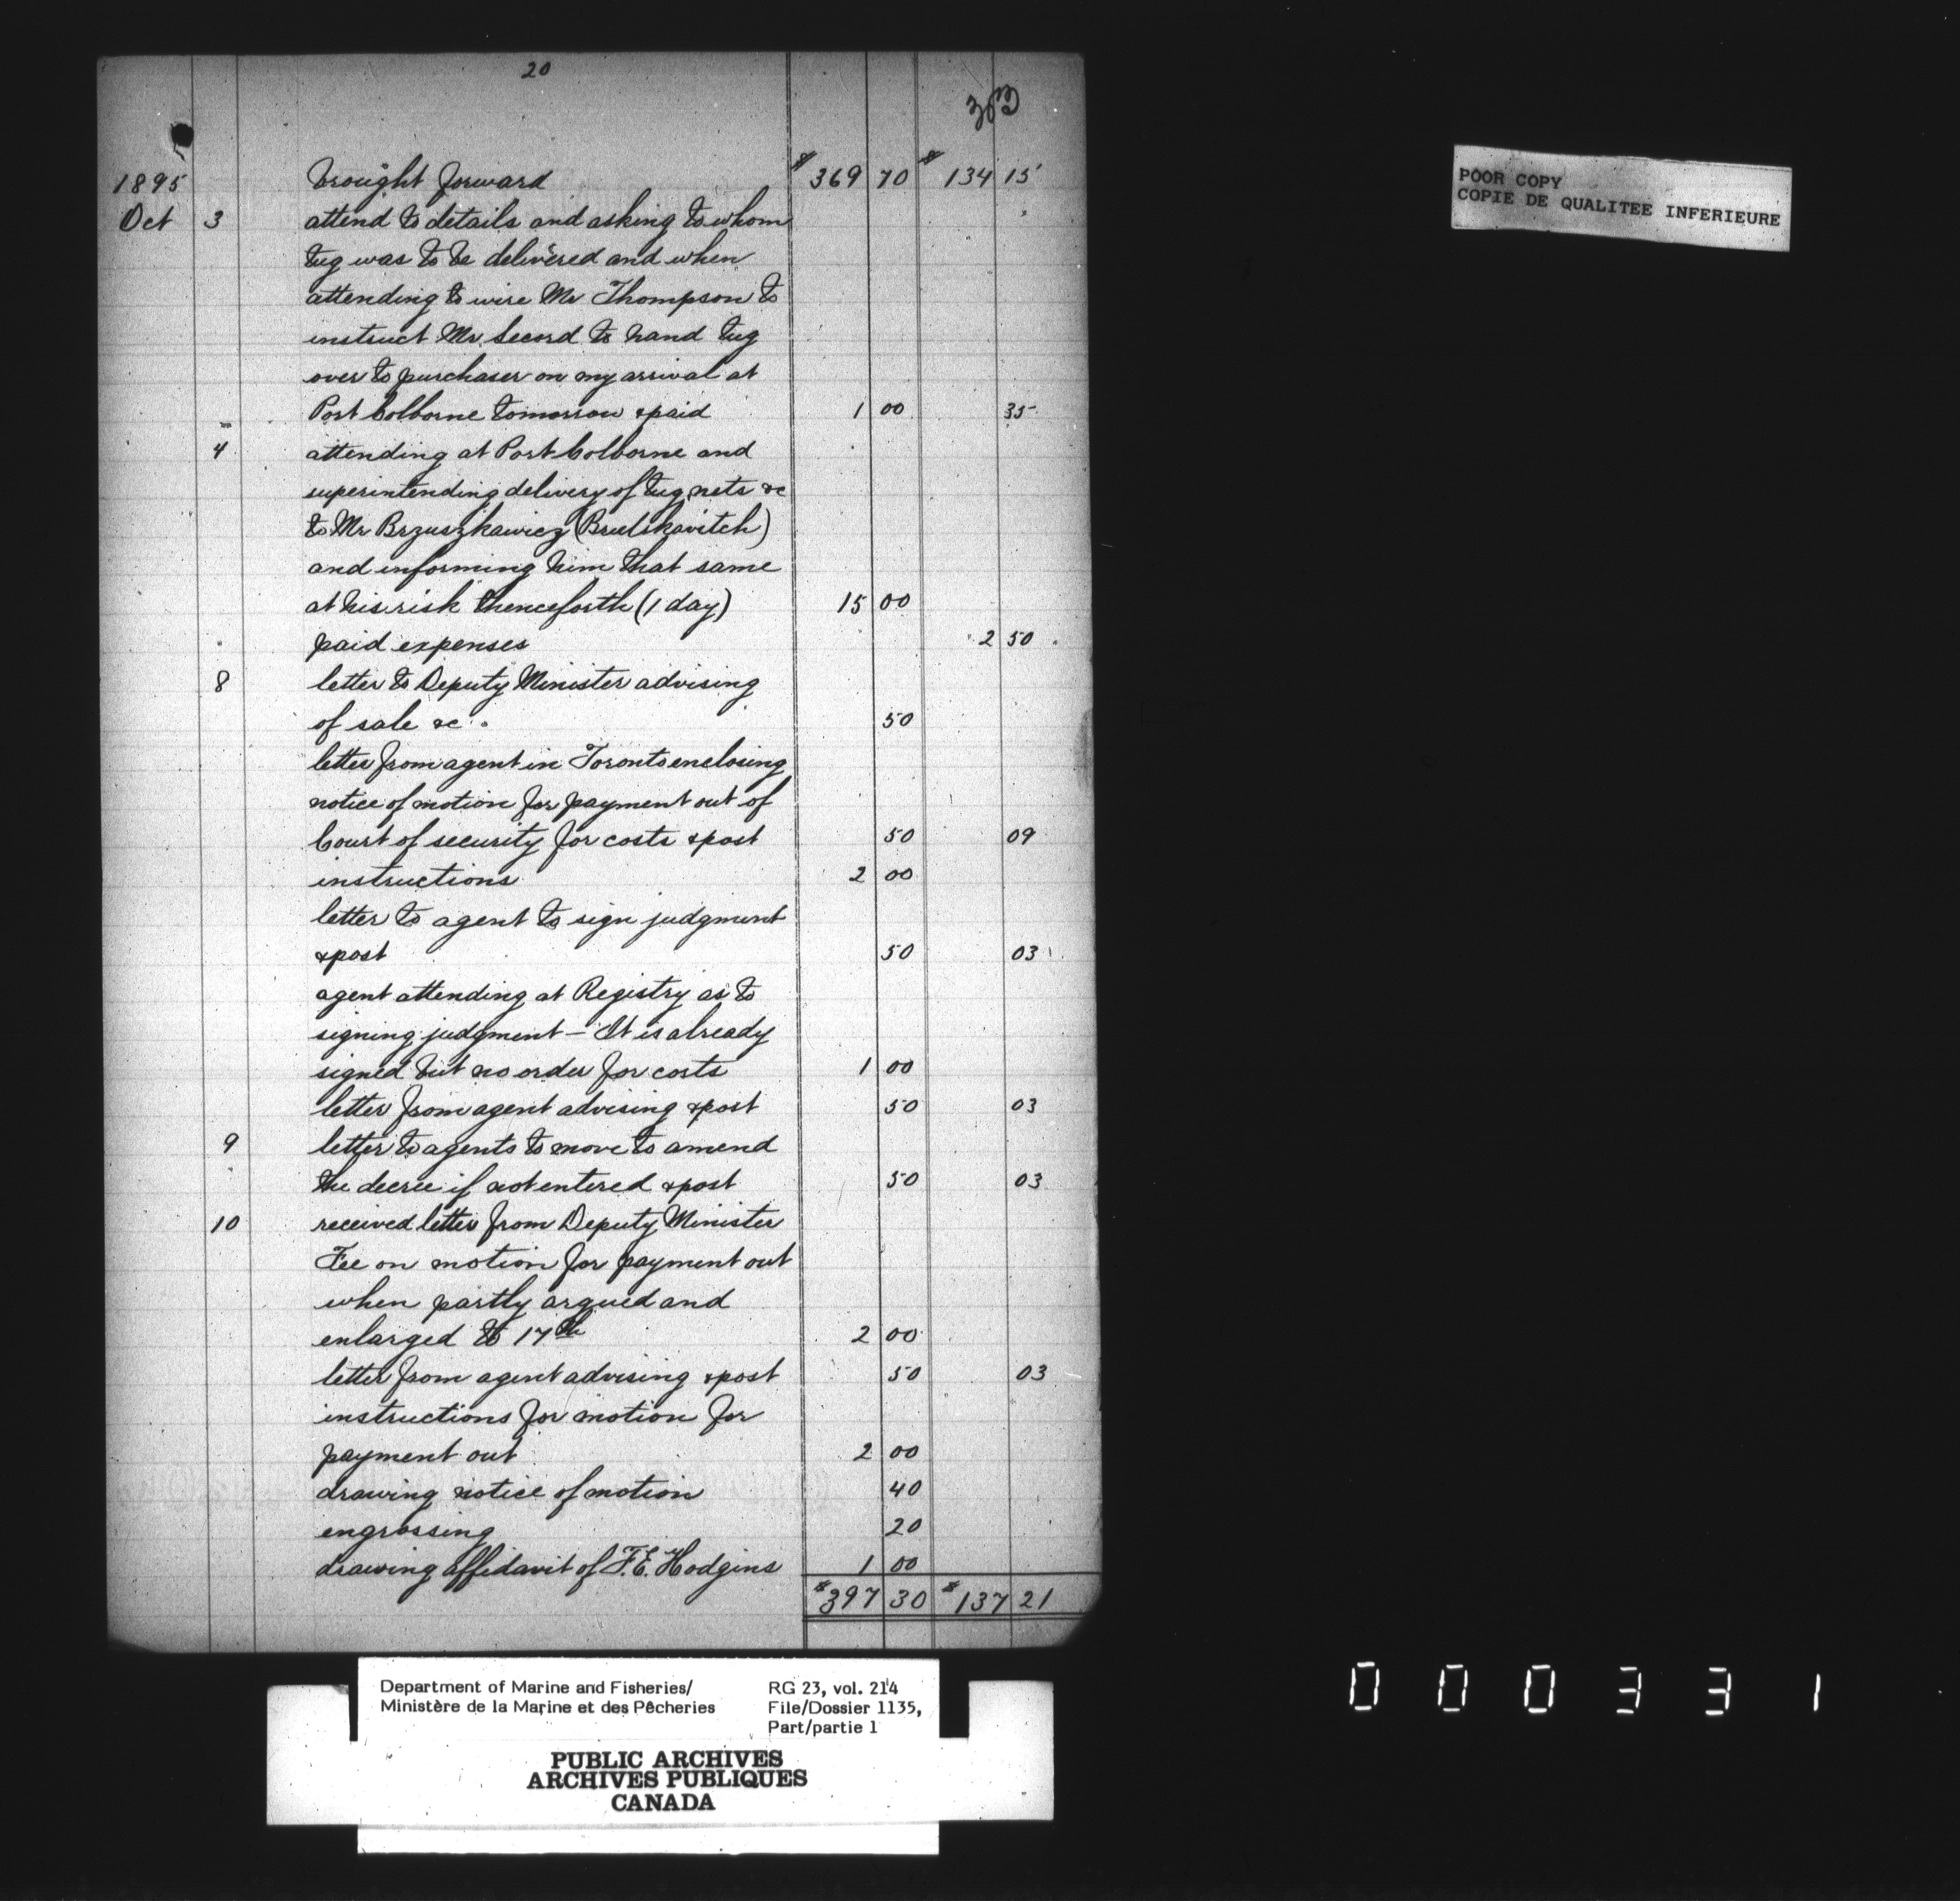 20
303
1895 brought forward $369 70 $134 15
Oct 3 attend to details and asking to whom
tug was to be delivered and when
attending to wire Mr Thompson to
instruct Mr Secord to hand tug
over to purchaser on my arrival at
Port Colborne tomorrow & paid 1 00 35
4 attending at Port Colborne and
superintending delivery of tug, nets &c
to Mr Brzuszkawicz (Brulskavitch)
and informing him that same
at his risk thenceforth (1 day) 15 00
paid expenses 2 50
8 letter to Deputy Minister advising
of sale &c. 50
letter from agent in Toronto enclosing
notice of motion for payment out of
Court of security for costs & post 50 09
instructions 2 00
letter to agent to sign judgment
& post 50 03
agent attending at Registry as to
signing judgment – It is already
signed but no order for costs 1 00
letter from agent advising & post 50 03
9 letter to agents to move to amend
the decree if not entered & post 50 03
10 received letter from Deputy Minister
Fee on motion for payment out
when partly argued and
enlarged to 17th 2 00
letter from agent advising & post 50 03
instructions for motion for
payment out 2 00
drawing notice of motion 40
engrossing 20
drawing affidavit of F.E. Hodgins 1 00
$397 30 $137 21
POOR COPY
COPIE DE QUALITEE INFERIEURE
Department of Marine and Fisheries/ RG 23, vol. 214
Ministère de la Marine et des Pêcheries File/Dossier 1135,
Part/partie 1
PUBLIC ARCHIVES
ARCHIVES PUBLIQUES
CANADA
000331